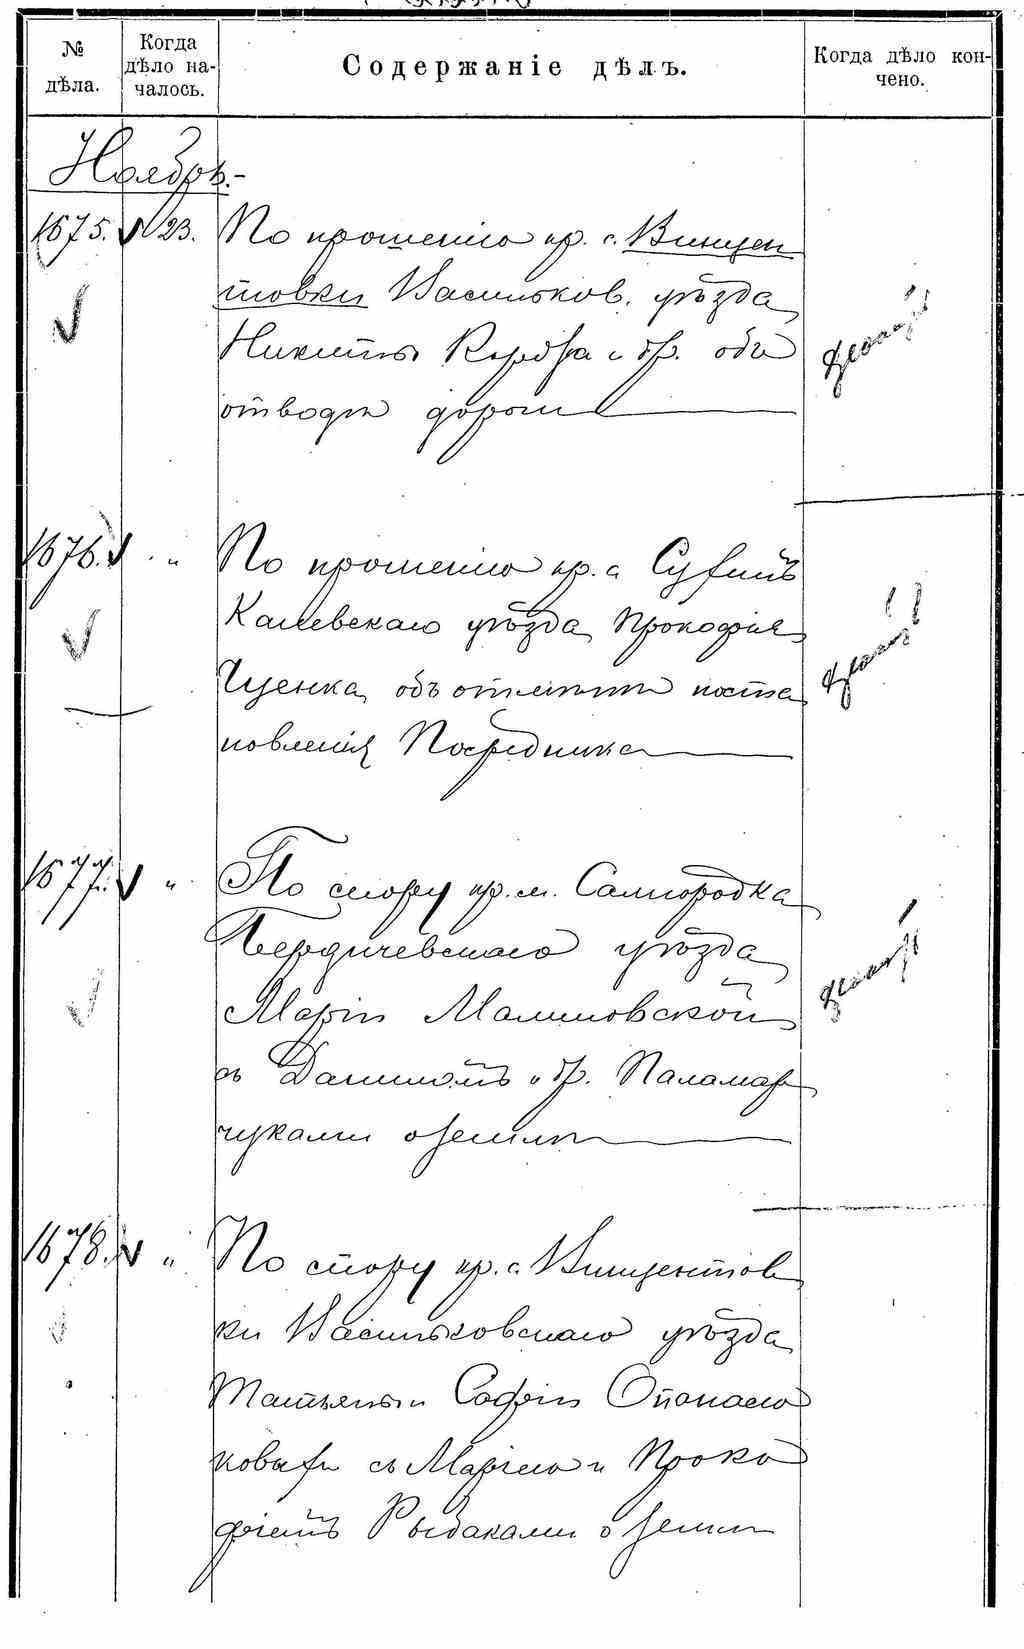 № дѣла.
Когда дѣло на-
чалось.
Содержаніе дѣлъ.
Когда дѣло кон-
чено.
Ноябрь.-
1675. 23. По прошенію кр. с. Винцен
товки Васильков. уѣзда
Никиты и др. объ
отводѣ дороги
1676. " По прошенію кр. с.
Каневскаго уѣзда Прокофія
Иценка объ отмѣнѣ поста
новленія Посредника
1677. " По спору кр. м. Самгородка
Бердичевскаго уѣзда
Маріи Малиновской
съ Даниломъ и др. Паламар
чуками о землѣ
1678. " По спору кр. с. Винцентов
ки Васильковскаго уѣзда
Татьяны и Софіи Опанасю
ковыхъ съ Маріею и Проко
фіемъ Рыбаками о землѣ